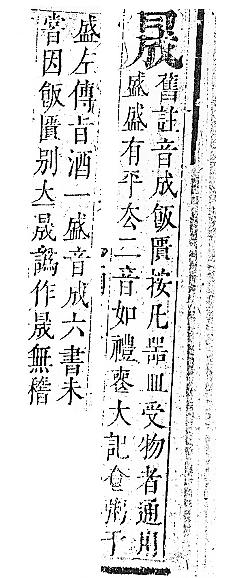 晟
舊註音成飯匱按凡器皿受物者通用
盛盛有平去二音如禮喪大記食粥于
盛左傳旨酒一盛音成六書未
甞因飯匱別大晟譌作晟無稽